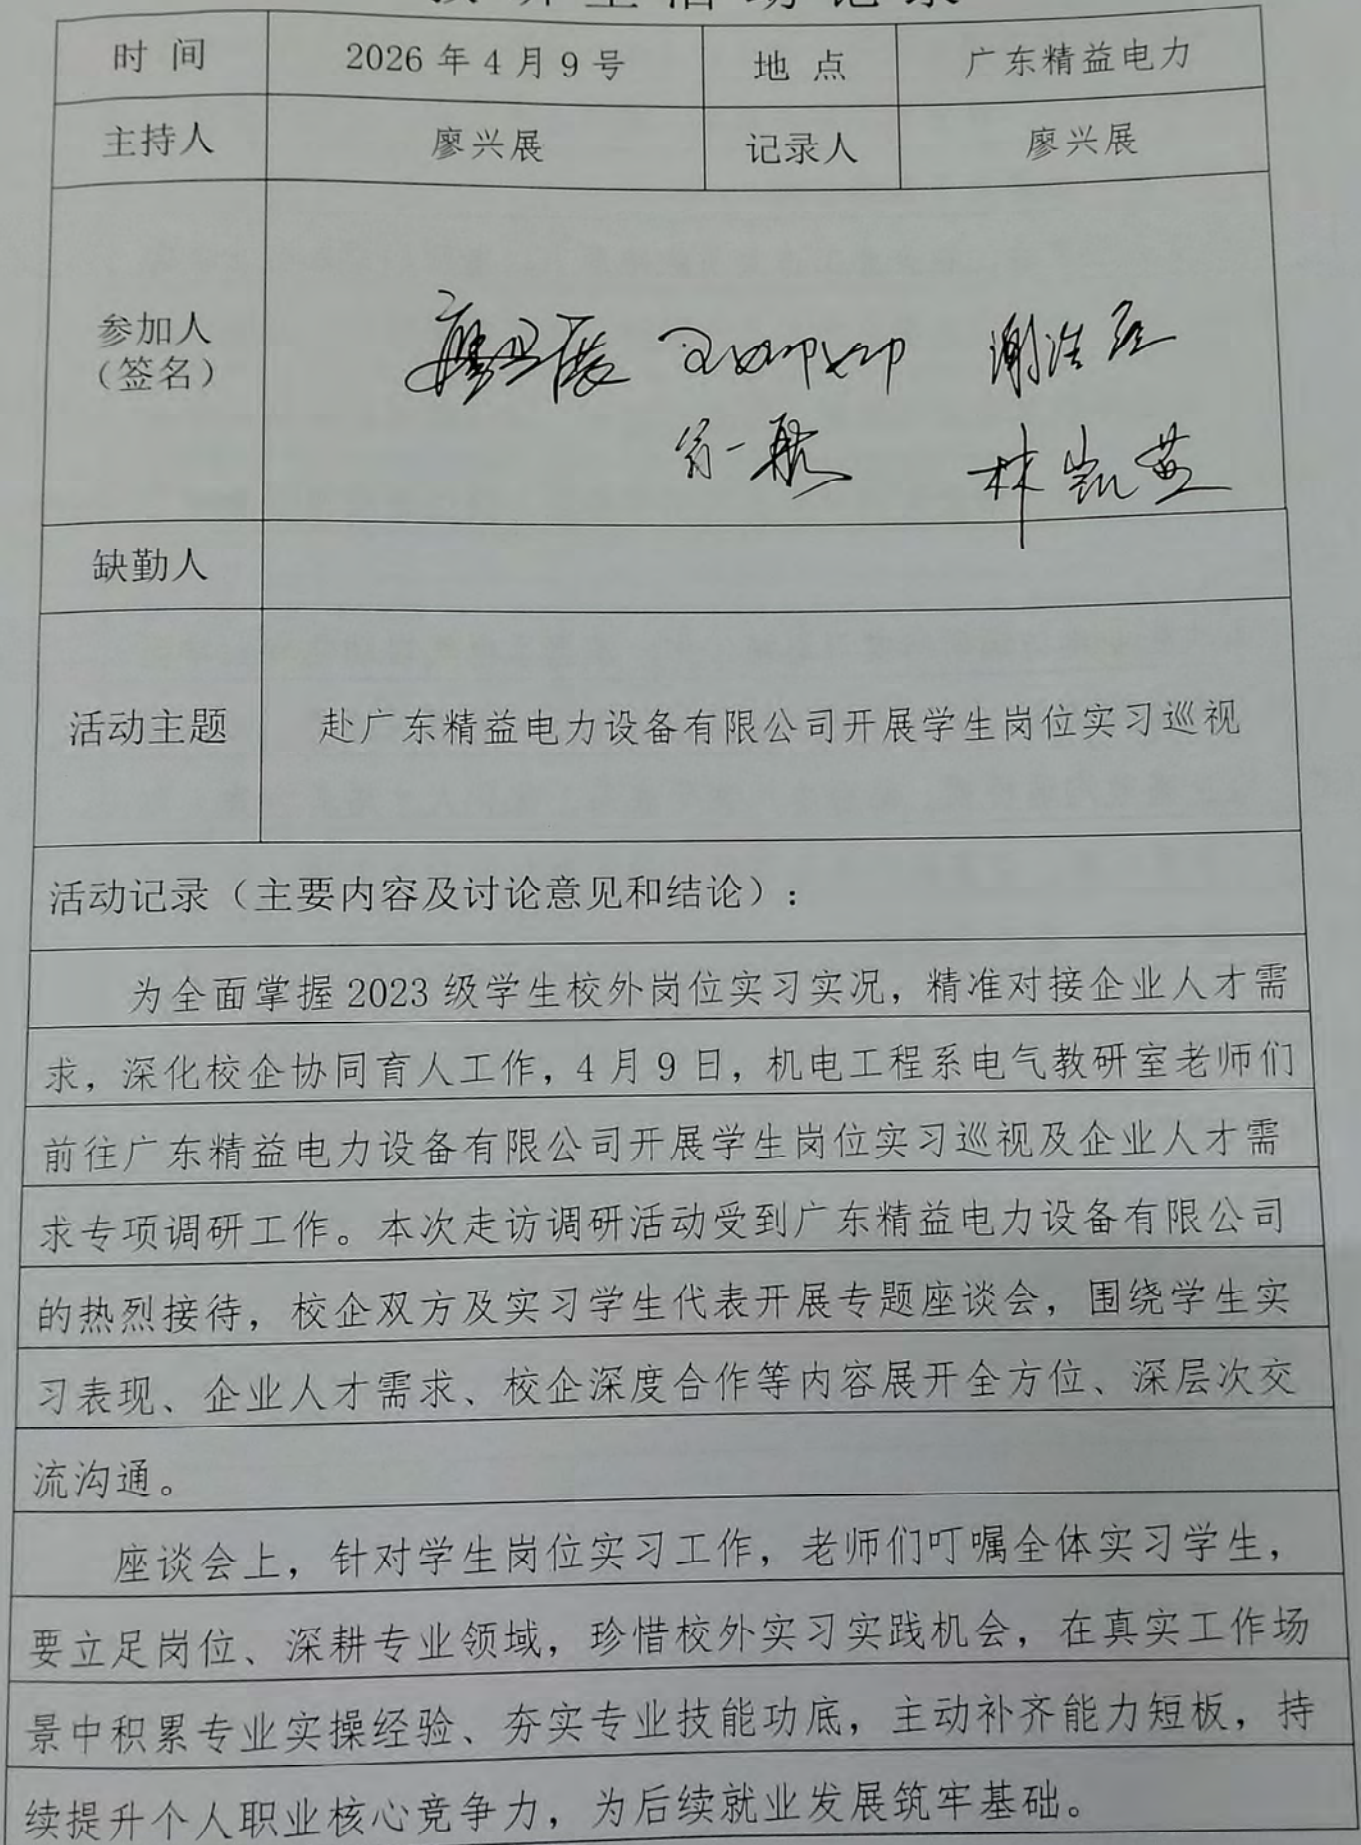 教研室活动记录
时 间 2026 年 4 月 9 号 地 点 广东精益电力
主持人 廖兴展 记录人 廖兴展
参加人
（签名）
廖兴展
林凯
缺勤人
活动主题 赴广东精益电力设备有限公司开展学生岗位实习巡视
活动记录（主要内容及讨论意见和结论）：
为全面掌握 2023 级学生校外岗位实习实况，精准对接企业人才需
求，深化校企协同育人工作，4 月 9 日，机电工程系电气教研室老师们
前往广东精益电力设备有限公司开展学生岗位实习巡视及企业人才需
求专项调研工作。本次走访调研活动受到广东精益电力设备有限公司
的热烈接待，校企双方及实习学生代表开展专题座谈会，围绕学生实
习表现、企业人才需求、校企深度合作等内容展开全方位、深层次交
流沟通。
座谈会上，针对学生岗位实习工作，老师们叮嘱全体实习学生，
要立足岗位、深耕专业领域，珍惜校外实习实践机会，在真实工作场
景中积累专业实操经验、夯实专业技能功底，主动补齐能力短板，持
续提升个人职业核心竞争力，为后续就业发展筑牢基础。